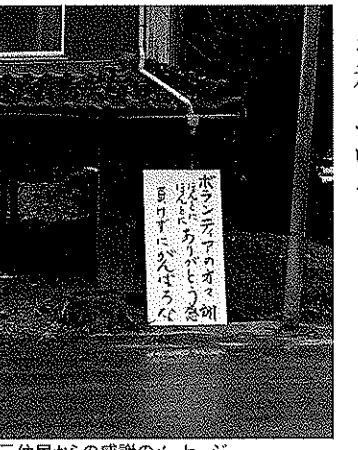 ボランティアの
ほんとに
ほんとに
ありがとう
負けずにがんばろな
住民からの感謝のメッセージ